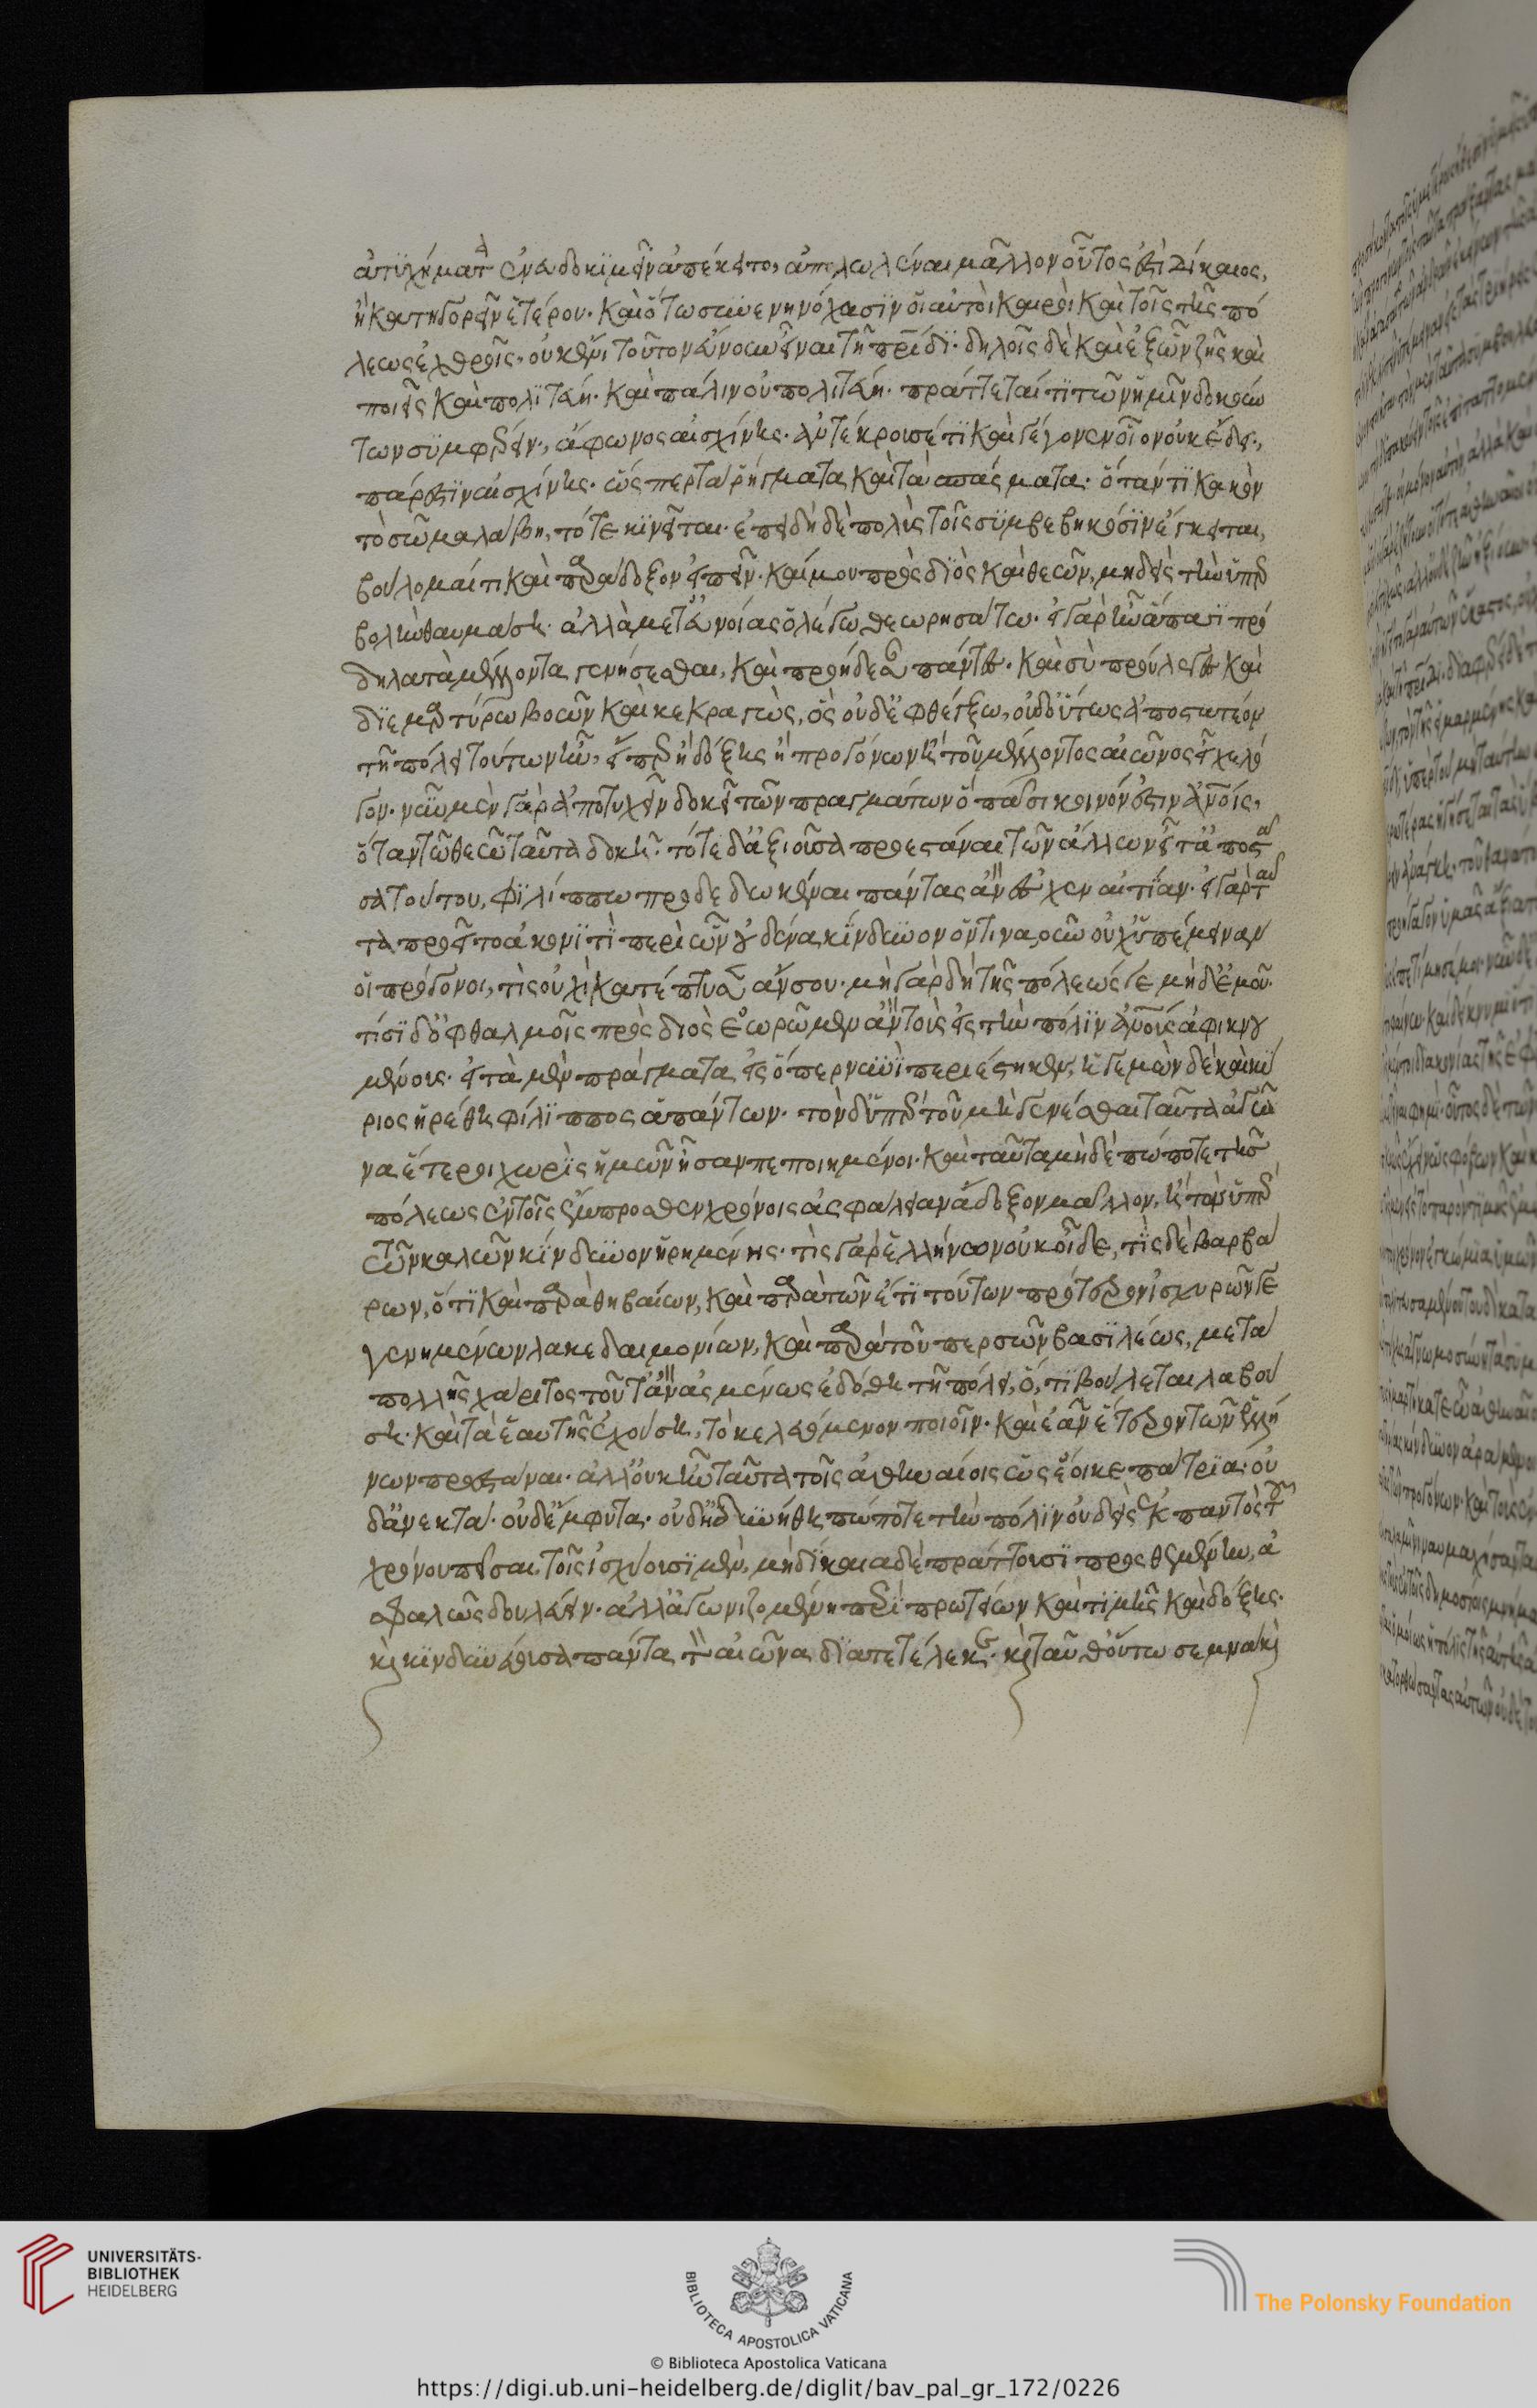 ἀτυχήματα ἐνευδοκιμεῖν ἀπέκειτο, ἀπολωλέναι μᾶλλον οὗτος ἐστὶ δίκαιος,
ἢ κατηγορεῖν ἑτέρου. καὶ ὅτω συνενηνόχασιν οἱ αὐτοὶ καιροὶ καὶ τοῖς τῆς πό
λεως ἐχθροῖς, οὐκ ἔνι τοῦτον εὔνουν εἶναι τῇ πατρίδι. δηλοῖς δὲ καὶ ἐξ ὧν ζῇς καὶ
ποιεῖς καὶ πολιτεύῃ. καὶ πάλιν οὐ πολιτεύῃ. πράττεταί τι τῶν ἡμῖν δοκούν
των συμφέρειν, ἄφωνος αἰσχίνης. ἀντέκρουσέ τι καὶ γέγονεν οἷον οὐκ ἔδει,
πάρεστιν αἰσχίνης. ὥσπερ τὰ ῥήγματα καὶ τὰ σπάσματα. ὅταν τι κακὸν
τὸ σῶμα λάβῃ, τότε κινεῖται. ἐπειδὴ δὲ πολὺς τοῖς συμβεβηκόσιν ἔγκειται,
βούλομαί τι καὶ παράδοξον εἰπεῖν. καί μου πρὸς διὸς καὶ θεῶν, μηδεὶς τὴν ὑπερ
βολὴν θαυμάσῃ. ἀλλὰ μετ' εὐνοίας ὃ λέγω θεωρησάτω. εἰ γὰρ ἦν ἅπασι πρό
δηλα τὰ μέλλοντα γενήσεσθαι, καὶ προῄδεσαν πάντες. καὶ σὺ προύλεγες καὶ
διεμαρτύρου βοῶν καὶ κεκραγώς, ὃς οὐδ' ἐφθέγξω, οὐδ' οὕτως ἀποστατέον
τῇ πόλει τούτων ἦν, εἴπερ ἢ δόξης ἢ προγόνων ἢ τοῦ μέλλοντος αἰῶνος εἶχε λό
γον. νῦν μὲν γὰρ ἀποτυχεῖν δοκεῖ τῶν πραγμάτων ὃ πᾶσι κοινόν ἐστιν ἀνθρώποις,
ὅταν τῷ θεῷ ταῦτα δοκῇ. τότε δ' ἀξιοῦσα προεστάναι τῶν ἄλλων εἶτ' ἀποστᾶ
σα τούτου, φιλίππω προδεδωκέναι πάντας ἂν ἔσχεν αἰτίαν. εἰ γὰρ ταῦ
τα προεῖτο ἀκονιτὶ περὶ ὧν οὐδένα κίνδυνον ὅντινα οὖν οὐχ ὑπέμειναν
οἱ πρόγονοι, τίς οὐχὶ κατέπτυσεν ἄν σου. μὴ γὰρ δὴ τῆς πόλεώς γε μηδ' ἐμοῦ.
τίσι δ' ὀφθαλμοῖς πρὸς διὸς ἑωρῶμεν ἂν τοὺς εἰς τὴν πόλιν ἀνθρώπους ἀφικνου
μένους. εἰ τὰ μὲν πράγματα εἰς ὅπερ νυνὶ περιέστηκεν, ἡγεμὼν δὲ καὶ κύ
ριος ᾑρέθη φίλιππος ἁπάντων. τὸν δ' ὑπὲρ τοῦ μὴ γενέσθαι ταῦτα ἀγῶ
να ἕτεροι χωρὶς ἡμῶν ἦσαν πεποιημένοι. καὶ ταῦτα μηδὲ πώποτε τῆς
πόλεως ἐν τοῖς ἔμπροσθεν χρόνοις ἀσφάλειαν ἄδοξον μᾶλλον, ἢ τὸν ὑπὲρ
τῶν καλῶν κίνδυνον ᾑρημένης. τίς γὰρ ἑλλήνων οὐκ οἶδε, τίς δὲ βαρβά
ρων, ὅτι καὶ παρὰ θηβαίων, καὶ παρὰ τῶν ἔτι τούτων πρότερον ἰσχυρῶν γε
γενημένων λακεδαιμονίων, καὶ παρὰ τοῦ περσῶν βασιλέως, μετὰ
πολλῆς χάριτος τοῦτ' ἂν ἀσμένως ἐδόθη τῇ πόλει, ὅ, τι βούλεται λαβού
σῃ. καὶ τὰ ἑαυτῆς ἐχούσῃ, τὸ κελευόμενον ποιεῖν. καὶ ἐᾶν ἕτερον τῶν ἑλλή
νων προεστάναι. ἀλλ' οὐκ ἦν ταῦτα τοῖς ἀθηναίοις ὡς ἔοικε πάτρια. οὐ
δ' ἀνεκτά. οὐδ' ἔμφυτα. οὐδ' ἠδυνήθη πώποτε τὴν πόλιν οὐδεὶς ἐκ παντὸς τοῦ
χρόνου πεῖσαι, τοῖς ἰσχύουσι μέν, μὴ δίκαια δὲ πράττουσι προσθεμένην, ἀ
σφαλῶς δουλεύειν. ἀλλ' ἀγωνιζομένη περὶ πρωτείων καὶ τιμῆς καὶ δόξης.
καὶ κινδυνεύουσα πάντα τὸν αἰῶνα διατετέλεκε. καὶ ταῦθ' οὕτω σεμνὰ καὶ
UNIVERSITÄTS-
BIBLIOTHEK
HEIDELBERG
BIBLIOTECA APOSTOLICA VATICANA
© Biblioteca Apostolica Vaticana
The Polonsky Foundation
https://digi.ub.uni-heidelberg.de/diglit/bav_pal_gr_172/0226